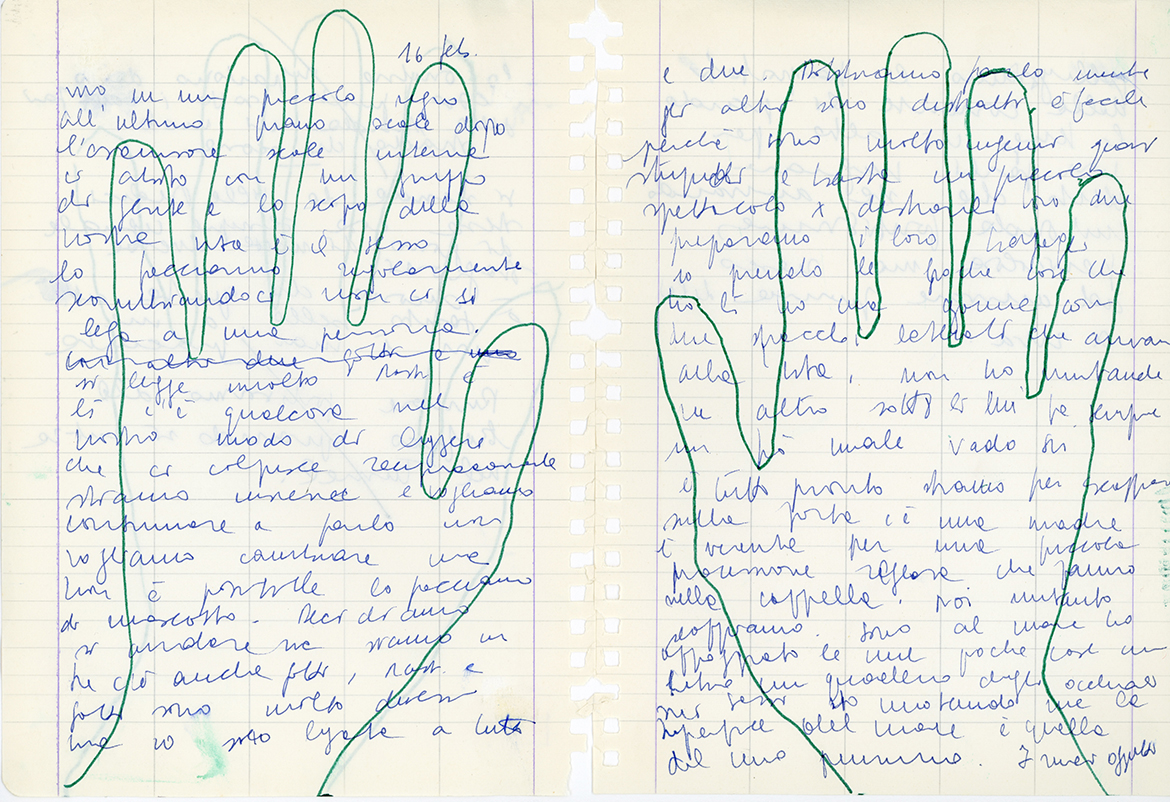 16 feb.
vivo in un piccolo regno
all'ultimo piano scale dopo
l'ascensore scale interne
ci abito con un gruppo
di gente e lo scopo della
nostra vita è il sesso
lo facciamo regolarmente
scambiandoci non ci si
lega a una persona.
si legge molto
lì c'è qualcosa nel
nostro modo di leggere
che ci colpisce
strano e vogliamo
continuare a farlo non
vogliamo continuare ma
non è possibile lo facciamo
di nascosto. Decidiamo
di andare via siamo in
tre c'è anche
sono molto diversi
ma io sono legata a tutti
e due. farlo mente
gli altri sono distratti è facile
perché sono molto ingenui quasi
stupidi e basta un piccolo
spettacolo x distrarre loro due
preparano i loro bagagli
io prendo le poche cose che
ho lì ho una gonna con
due spacchi laterali che arrivano
alla vita, non ho mutande
ne altro sotto e lui fa sempre
un pò male vado sù
è tutto pronto stiamo per scappare
sulla porta c'è una madre
è venuta per una piccola
processione che fanno
nella cappella. noi intanto
scappiamo. sono al mare ho
appoggiato le mie poche cose un
libro un quaderno degli occhiali
sui sassi sto nuotando ma la
superficie del mare è quella
del mio piumino. I miei oggetti